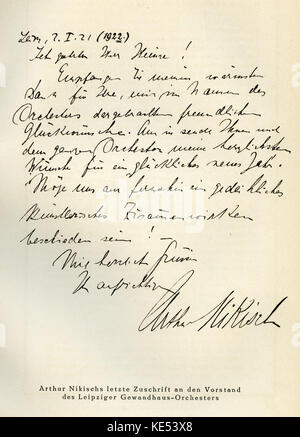 2. I. 21 (1922)
geehrter Herr Heinze!
Empfangen Sie meinen wärmsten
Dank für Ihre, mir im Namen des
Orchesters dargebrachten freundlichen
Glückwünsche. sende Ihnen und
dem ganzen Orchester meine herzlichsten
Wünsche für ein glückliches neues Jahr.
Möge uns ein gedeihliches
künstlerisches Zusammenwirken
beschieden sein!
Arthur Nikisch
Arthur Nikischs letzte Zuschrift an den Vorstand
des Leipziger Gewandhaus-Orchesters